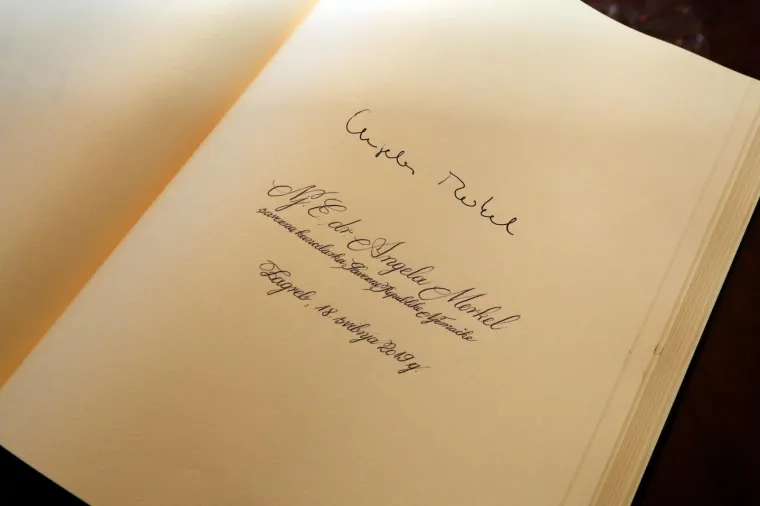 Angela Merkel
Nj. E. dr. Angela Merkel
savezna kancelarka, Savezna Republika Njemačka
Zagreb, 18. svibnja 2019. g.